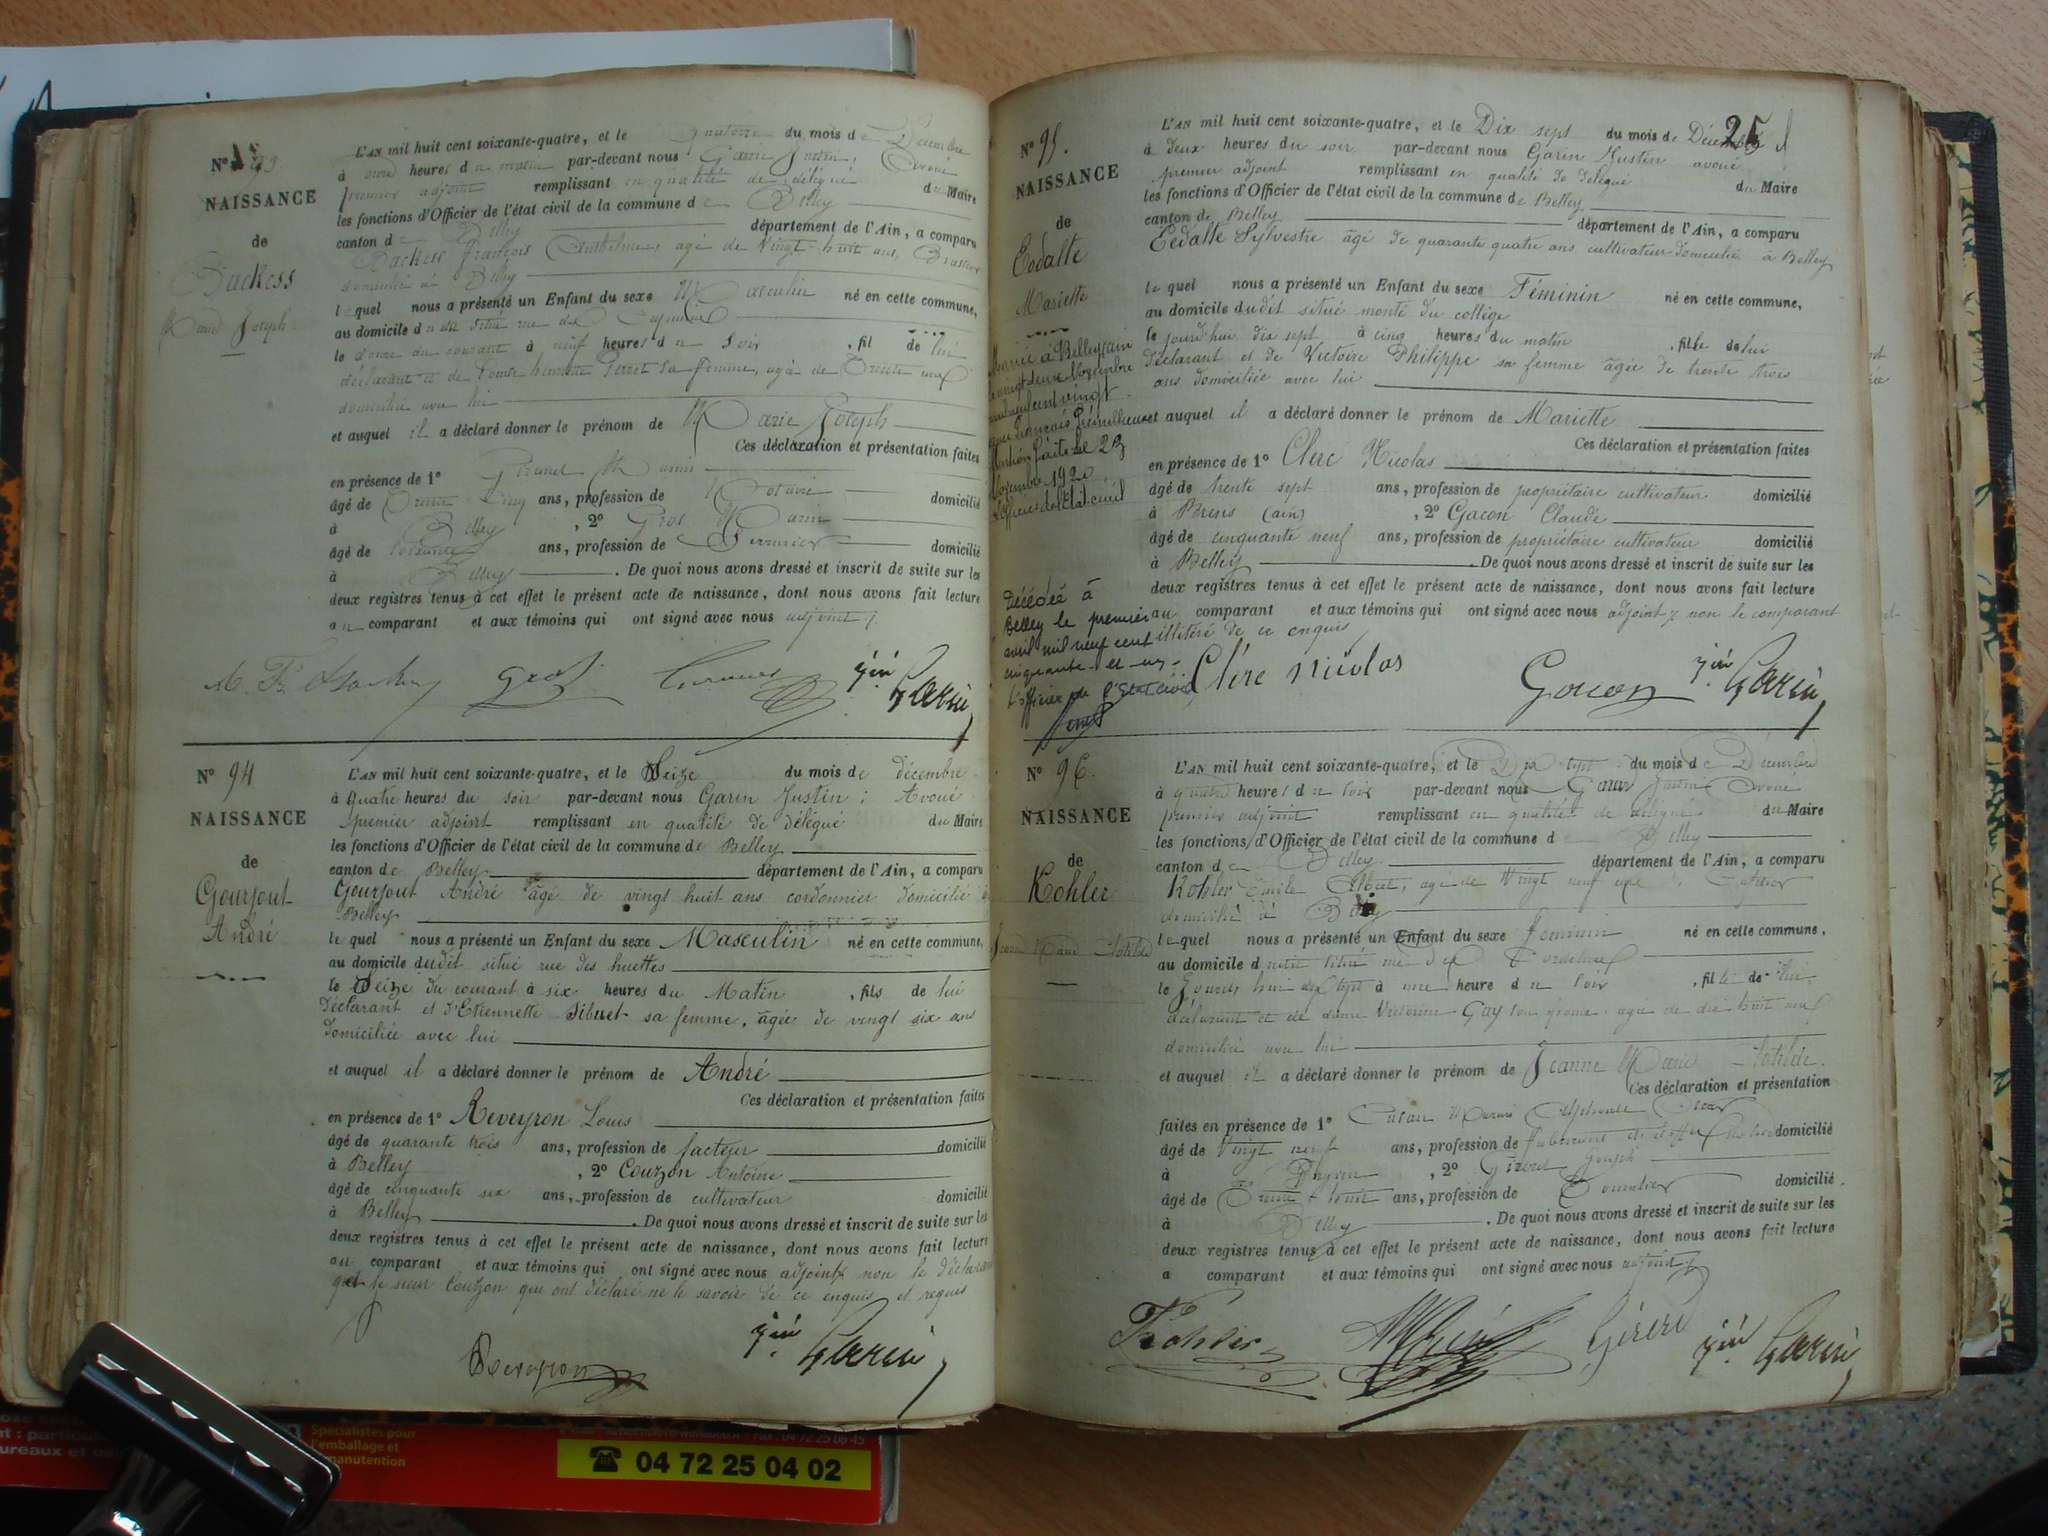 N° 93
NAISSANCE
de
Backess
Marie Joseph
L'AN mil huit cent soixante-quatre, et le quatorze du mois de Décembre
à onze heures du matin par-devant nous Garin Justin, Avoué
premier adjoint remplissant en qualité de délégué du Maire
les fonctions d'Officier de l'état civil de la commune de Belley
canton de Belley département de l'Ain, a comparu
Backess François Anthelme, agé de vingt-huit ans, Brasseur
domicilié à Belley
lequel nous a présenté un Enfant du sexe Masculin né en cette commune,
au domicile du dit situé rue des Capucins
le douze du courant à neuf heures du soir, fil de lui
déclarant et de Perret sa femme, agée de Trente ans
domiciliée avec lui
et auquel il a déclaré donner le prénom de Marie Joseph
Ces déclaration et présentation faites
en présence de 1°
âgé de Trente cinq ans, profession de Notaire domicilié
à Belley, 2° Gros Marin
âgé de soixante ans, profession de Serrurier domicilié
à Belley. De quoi nous avons dressé et inscrit de suite sur les
deux registres tenus à cet effet le présent acte de naissance, dont nous avons fait lecture
au comparant et aux témoins qui ont signé avec nous adjoint
Gros Jin Garin
N° 94
NAISSANCE
de
Gourjout
André
L'AN mil huit cent soixante-quatre, et le Seize du mois de décembre
à Quatre heures du soir par-devant nous Garin Justin; Avoué
premier adjoint remplissant en qualité de délégué du Maire
les fonctions d'Officier de l'état civil de la commune de Belley
canton de Belley département de l'Ain, a comparu
Gourjout André âgé de vingt huit ans cordonnier domicilié à
Belley
lequel nous a présenté un Enfant du sexe Masculin né en cette commune,
au domicile dudit situé rue des huettes
le Seize du courant à six heures du Matin, fils de lui
Déclarant et d'Etiennette Sibuet sa femme, âgée de vingt six ans
domiciliée avec lui
et auquel il a déclaré donner le prénom de André
Ces déclaration et présentation faites
en présence de 1° Reveyron Louis
âgé de quarante trois ans, profession de facteur domicilié
à Belley, 2° Couzon Antoine
âgé de cinquante six ans, profession de cultivateur domicilié
à Belley. De quoi nous avons dressé et inscrit de suite sur les
deux registres tenus à cet effet le présent acte de naissance, dont nous avons fait lecture
au comparant et aux témoins qui ont signé avec nous adjoint non le déclarant
et le sieur Couzon qui ont déclaré ne le savoir de ce enquis et requis
Reveyron Jin Garin
25
N° 95.
NAISSANCE
de
Eedalte
Mariette
Mariée à Belley (ain
le vingt deux Novembre
mil neuf cent vingt
avec François
Mention faite le 23
Novembre 1920
L'officier de l'Etat civil
Décédée à
Belley le premier
avril mil neuf cent
cinquante et un
L'officier de l'état civil
L'AN mil huit cent soixante-quatre, et le Dix sept du mois de Décembre
à deux heures du soir par-devant nous Garin Justin avoué
premier adjoint remplissant en qualité de délégué du Maire
les fonctions d'Officier de l'état civil de la commune de Belley
canton de Belley département de l'Ain, a comparu
Eedalte Sylvestre âgé de quarante quatre ans cultivateur domicilié à Belley
lequel nous a présenté un Enfant du sexe Féminin né en cette commune,
au domicile dudit situé monté du collège
le jourd'hui dix sept à cinq heures du matin, fille de lui
déclarant et de Victoire Philippe sa femme âgée de trente trois
ans domiciliée avec lui
et auquel il a déclaré donner le prénom de Mariette
Ces déclaration et présentation faites
en présence de 1° Clerc Nicolas
âgé de trente sept ans, profession de propriétaire cultivateur domicilié
à Brens (ain), 2° Gacon Claude
âgé de cinquante neuf ans, profession de propriétaire cultivateur domicilié
à Belley. De quoi nous avons dressé et inscrit de suite sur les
deux registres tenus à cet effet le présent acte de naissance, dont nous avons fait lecture
au comparant et aux témoins qui ont signé avec nous adjoint non le comparant
illitéré de ce enquis
Clerc Nicolas Gacon Jin Garin
N° 96.
NAISSANCE
de
Kohler
Jeanne Marie Clotilde
L'AN mil huit cent soixante-quatre, et le Dix sept du mois de Décembre
à quatre heures du soir par-devant nous Garin Justin Avoué
premier adjoint remplissant en qualité de délégué du Maire
les fonctions d'Officier de l'état civil de la commune de Belley
canton de Belley département de l'Ain, a comparu
Kohler Emile Albert, agé de Vingt neuf ans
domicilié à Belley
lequel nous a présenté un Enfant du sexe Féminin né en cette commune,
au domicile
le jourd'hui dix sept à une heure du soir, fille de lui
déclarant et de dame Victorine Guy son épouse agée de dix huit ans
domiciliée avec lui
et auquel il a déclaré donner le prénom de Jeanne Marie Clotilde
Ces déclaration et présentation
faites en présence de 1° Alphonse
âgé de Vingt neuf ans, profession de domicilié
à, 2° Girerd Joseph
âgé de Trente huit ans, profession de domicilié
à Belley. De quoi nous avons dressé et inscrit de suite sur les
deux registres tenus à cet effet le présent acte de naissance, dont nous avons fait lecture
a comparant et aux témoins qui ont signé avec nous adjoint
Kohler Girerd Jin Garin
Spécialistes pour
l'emballage et
manutention
☎ 04 72 25 04 02